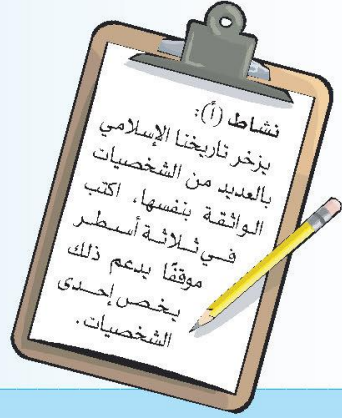 نشاط (أ):
يزخر تاريخنا الإسلامي
بالعديد من الشخصيات
الواثقة بنفسها، اكتب
في ثلاثة أسطر
موقفًا يدعم ذلك
يخص إحدى
الشخصيات.